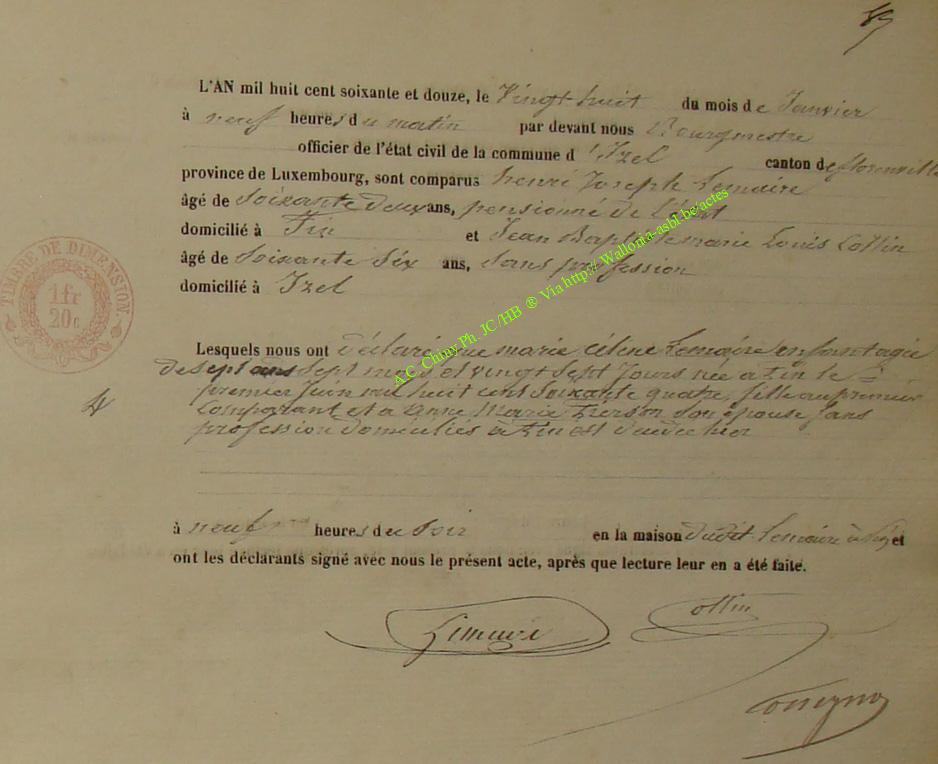 L'AN mil huit cent soixante et douze, le Vingt huit du mois de Janvier
à neuf heures du matin par devant nous Bourgmestre
officier de l'état civil de la commune d'Izel canton de florenville
province de Luxembourg, sont comparus henri Joseph Lemaire
âgé de Soixante deux ans, pensionné de l'état
domicilié à Fin et Jean Baptiste marie Louis Collin
âgé de Soixante Six ans, Sans profession
domicilié à Izel
TIMBRE DE DIMENSION.
1 fr
20c
Lesquels nous ont déclaré que marie Céline Lemaire enfant agée
de sept ans sept mois et vingt sept Jours née a fin le
premier Juin mil huit cent Soixante quatre, fille au premier
Comparant et a Anne Marie Son épouse Sans
profession domiciliés à Fin est décédée hier
à neuf heures du Soir en la maison dudit Lemaire à et
ont les déclarants signé avec nous le présent acte, après que lecture leur en a été faite.
Lemaire Collin
A.C. Chiny Ph. JC/HB ® Via http:// Wallonia-asbl.be/actes